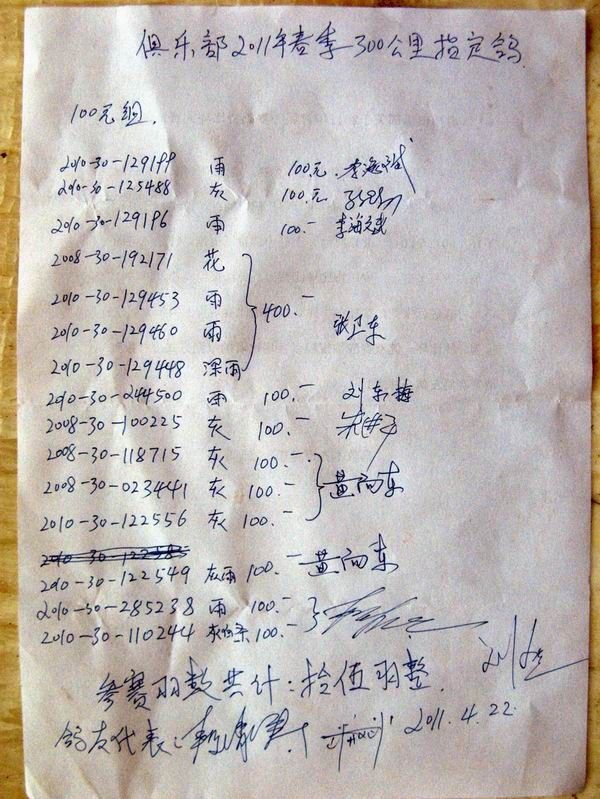 俱乐部2011年春季300公里指定鸽
100元组.
2010-30-129199 雨 100元.
2010-30-125488 灰 100元
2010-30-129196 雨 100.- 李海斌
2008-30-192171 花
2010-30-129453 雨
2010-30-129460 雨 400.- 张卫东
2010-30-129448 深雨
2010-30-244500 雨 100.- 刘东梅
2008-30-100225 灰 100.-
2008-30-118715 灰 100.-
2008-30-023441 灰 100.- 黄向东
2010-30-122556 灰 100.-
2010-30-122549 灰雨 100.- 黄向东
2010-30-285238 雨 100.-
2010-30-110244 100.-
参赛羽数共计:拾伍羽整.
鸽友代表: 2011.4.22.